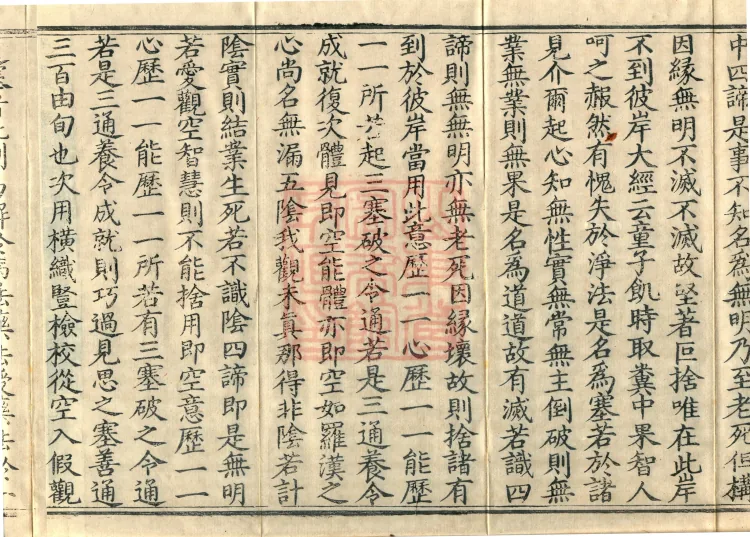 中四諦是事不知名爲無明乃至老死但構
因縁無明不滅不滅故堅著叵捨唯在此岸
不到彼岸大經云童子飢時取糞中果智人
呵之赧然有愧失於淨法是名爲塞若於諸
見介爾起心知無性實無常無主倒破則無
業無業則無果是名爲道道故有滅若識四
諦則無無明亦無老死因縁壞故則捨諸有
到於彼岸當用此意歷一一心歷一一能歷
一一所若起三塞破之令通若是三通養令
成就復次體見即空能體亦即空如羅漢之
心尚名無漏五陰我觀未眞那得非陰若計
陰實則結業生死若不識陰四諦即是無明
若愛觀空智慧則不能捨用即空意歷一一
心歷一一能歷一一所若有三塞破之令通
若是三通養令成就則巧過見思之塞善通
三百由旬也次用横織豎檢校從空入假觀